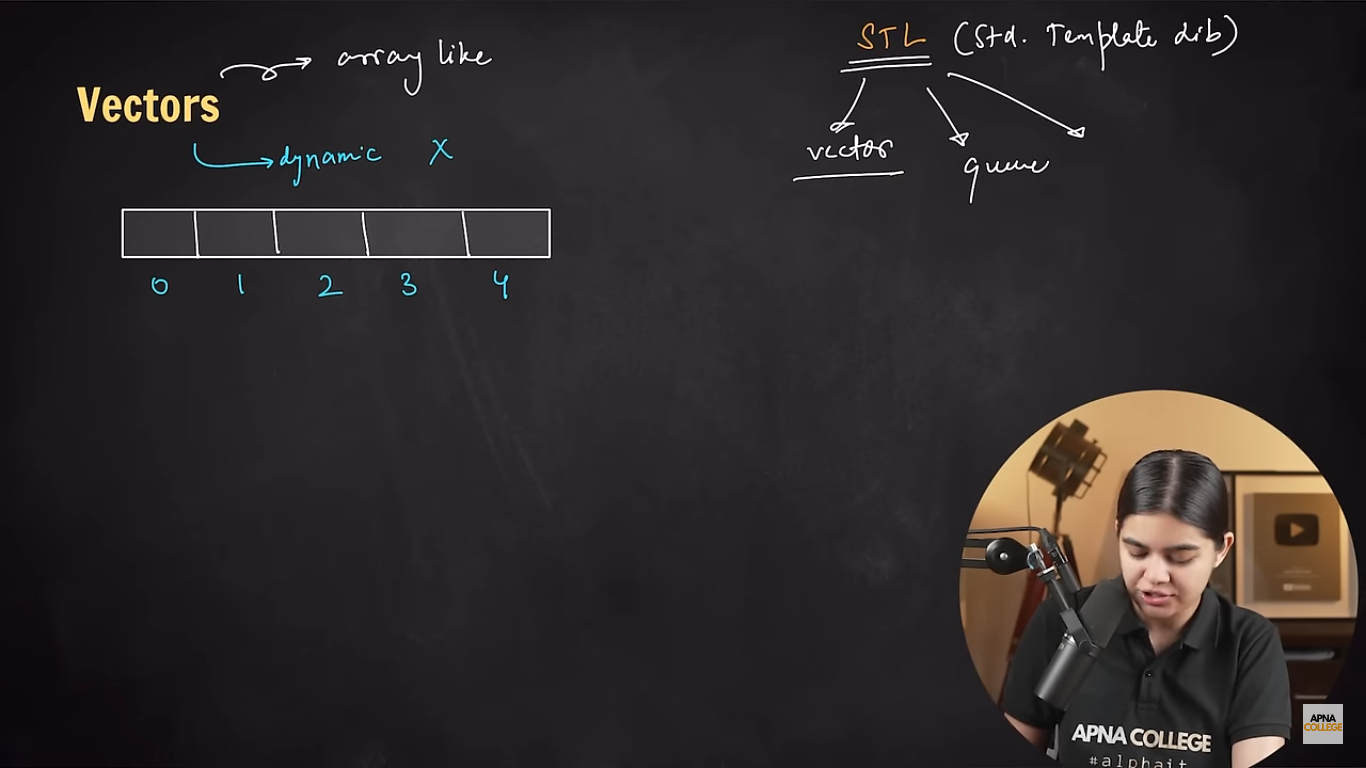 array like
Vectors
dynamic X
0 1 2 3 4
STL (Std. Template Lib)
vector
queue
APNA COLLEGE
#alphait
APNA
COLLEGE